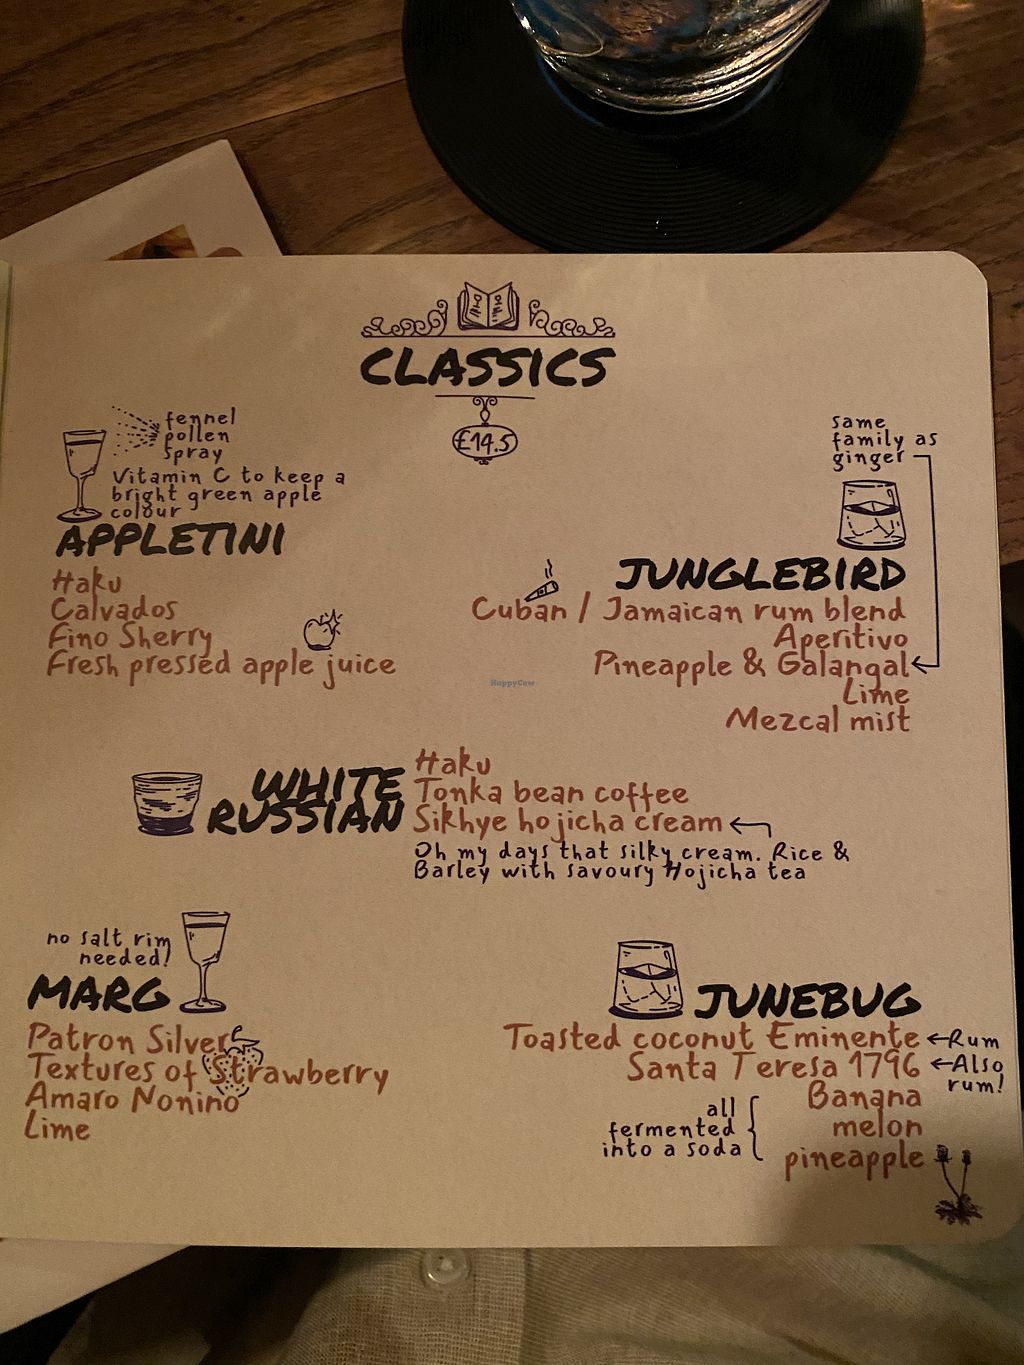 CLASSICS
£14.5
fennel
pollen
spray
Vitamin C to keep a
bright green apple
colour
APPLETINI
Haku
Calvados
Fino Sherry
Fresh pressed apple juice
same
family as
ginger
JUNGLEBIRD
Cuban / Jamaican rum blend
Aperitivo
Pineapple & Galangal
Lime
Mezcal mist
HappyCow
WHITE
RUSSIAN
Haku
Tonka bean coffee
Sikhye hojicha cream
Oh my days that silky cream. Rice &
Barley with savoury Hojicha tea
no salt rim
needed!
MARG
Patron Silver
Textures of Strawberry
Amaro Nonino
Lime
JUNEBUG
Toasted coconut Eminente
Rum
Santa Teresa 1796
Also
rum!
Banana
melon
pineapple
all
fermented
into a soda